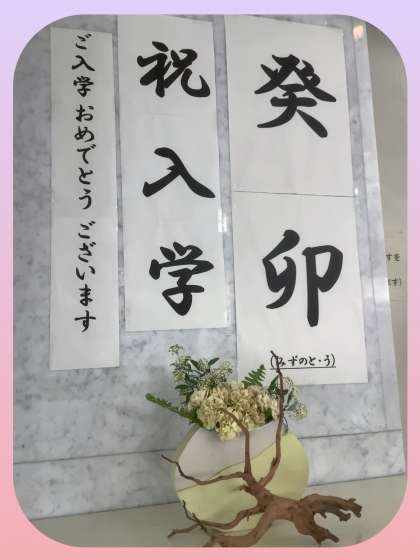 癸卯
(みずのと・う)
祝入学
ご入学 おめでとう ございます